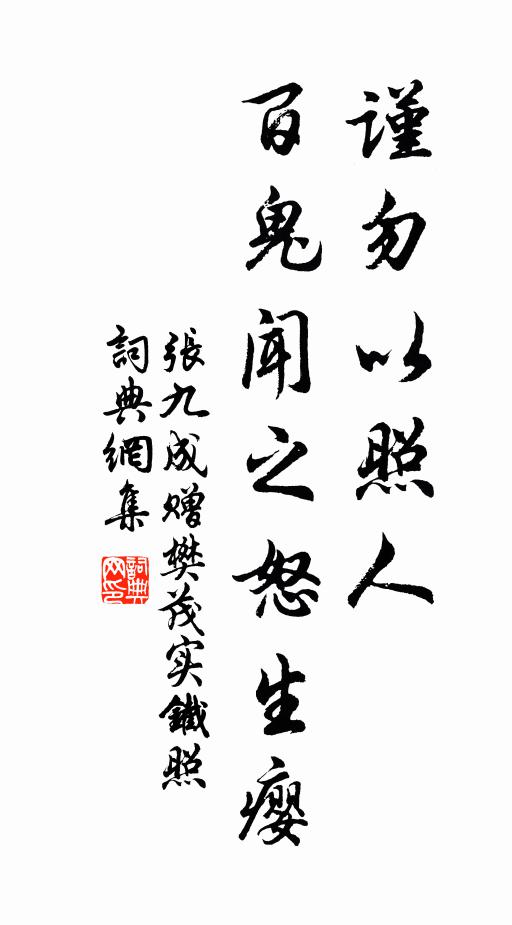 謹勿以照人
百鬼闻之怒生瘿
張九成赠樊茂实鐵照
詞典網集
詞典网印